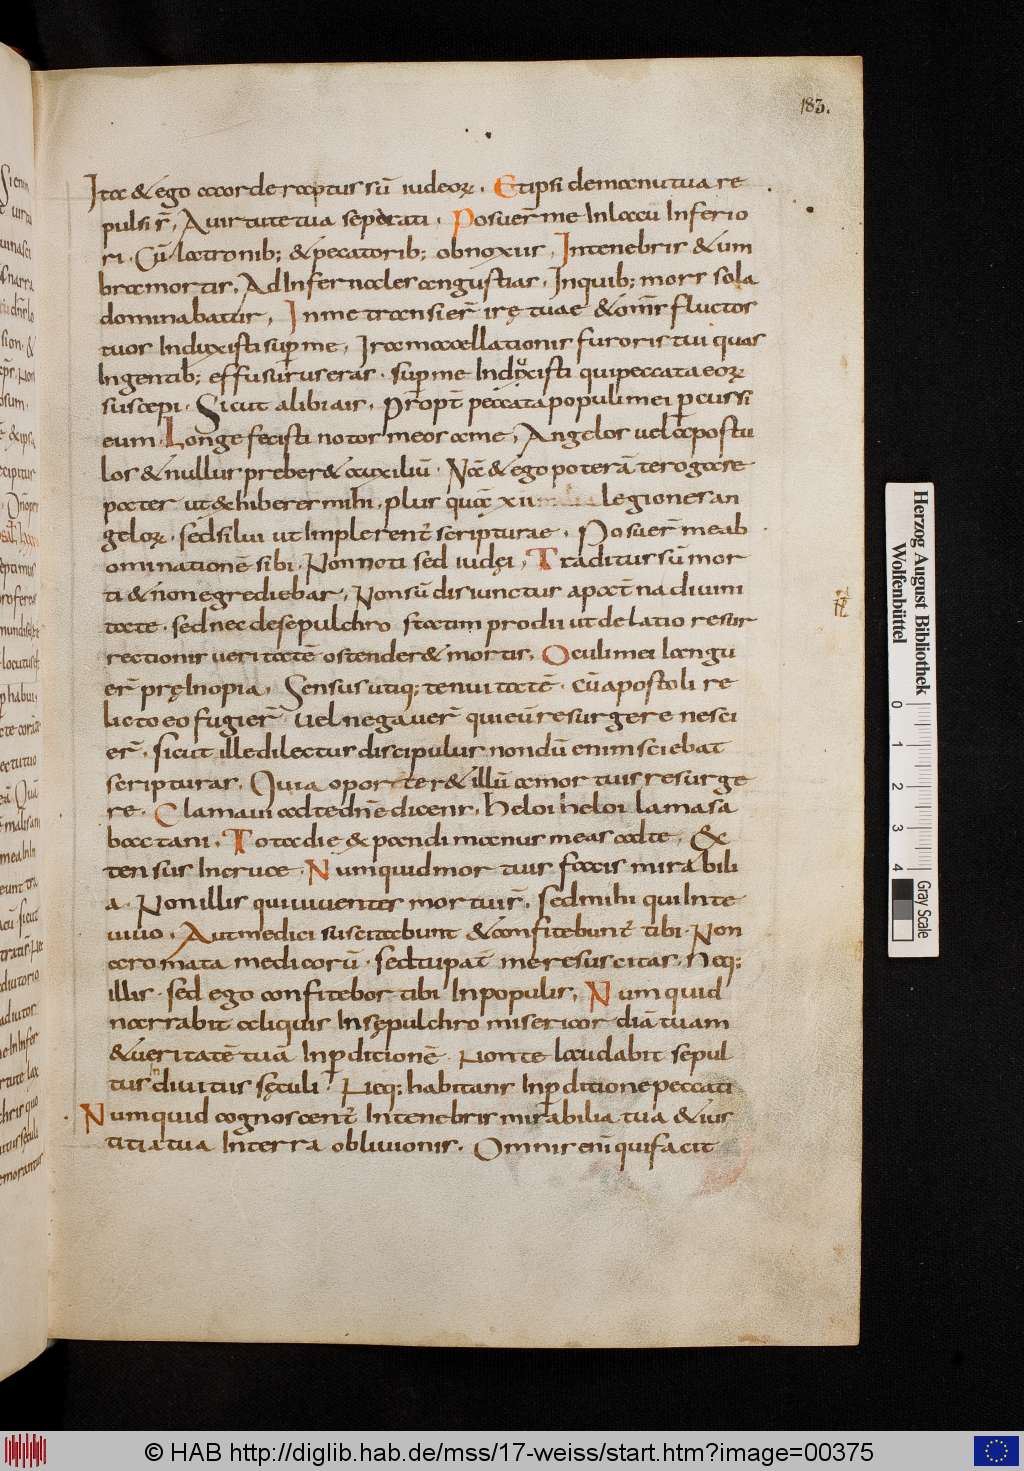 183.
Ita & ego a corde raptus sū iudeoꝝ. Et ipsi de manu tua re
pulsi s̄t, A uirtute tua seperati. Posuer̄ me In lacu Inferio
ri. Cū latronib; & pecatorib; obnoxius, In tenebris & um
bra mortis, Ad Infernales angustias. In quib; mors sola
dominabatur, In me transier̄ irę tuae & om̄s fluctos
tuos Induxisti suꝑ me, Iram axellationis furoris tui quas
In gentib; effusurus eras. suꝑ me Induxisti qui peccata eoꝝ
suscepi. Sicut alibi ais, Propt̄ peccata populi mei ꝑcussi
eum. Longe fecisti notos meos a me, Angelos uel apostu
los & nullus preber& auxiliū. Nā & ego poterā te rogare
pater ut exhiberes mihi, plus quā xii legiones an
geloꝝ. sed silui ut Implerent̄ scripturae. Posuer̄ me ab
ominationē sibi. Non noti sed iudęi, Traditus sū mor
ti & non egrediebar, Non sū disiunctus a pat̄na diuini
tate. sed nec de sepulchro statim prodii ut delatio resur
rectionis ueritatē ostender& mortis. Oculi mei langu
er̄ prę Inopia, Sensus utiq; tenuitatē. cū apostoli re
licto eo fugier̄ uel negauer̄ qui eū resurgere nesci
er̄. sicut ille dilectus discipulus nondū enim sciebat
scripturas. Quia oporter& illū a mortuis resurge
re. Clamaui ad te dn̄e dicens. heloi heloi lamasa
bactani. Tota die expandi manus meas ad te, Ex
tensus In cruce. Numquid mortuis facis mirabili
a. Non illis qui uiuentes mortui s̄t. sed mihi qui In te
uiuo. Aut medici suscitabunt & confitebunt̄ tibi. Non
aromata medicorū. sed tu pat̄ me resuscitas. Neq;
illis. sed ego confitebor tibi In populis, Numquid
narrabit aliquis In sępulchro misericordiā tuam
& ueritatē tuā In ꝑditionē. Non te laudabit sepul
tus In diuitus sęculi. Neq; habitans In ꝑditione peccati
Numquid cognoscent̄ In tenebris mirabilia tua & ius
titia tua In terra obliuionis. Omnis eni qui facit
Herzog August Bibliothek
Wolfenbüttel
0 1 2 3 4
Gray Scale
© HAB http://diglib.hab.de/mss/17-weiss/start.htm?image=00375